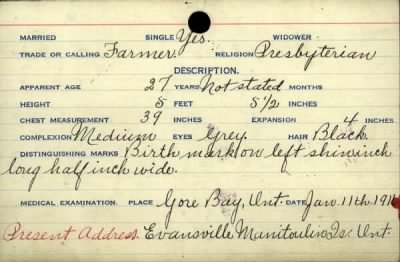 MARRIED SINGLE Yes. WIDOWER
TRADE OR CALLING Farmer. RELIGION Presbyterian
DESCRIPTION.
APPARENT AGE 27 YEARS Not stated MONTHS
HEIGHT 5 FEET 5½ INCHES
CHEST MEASUREMENT 39 INCHES EXPANSION 4 INCHES
COMPLEXION Medium EYES Grey. HAIR Black.
DISTINGUISHING MARKS Birth mark on left shin inch
long half inch wide.
MEDICAL EXAMINATION. PLACE Gore Bay, Ont. DATE Jan. 11th. 191
Present Address. Evansville Manitoulin Is. Ont.